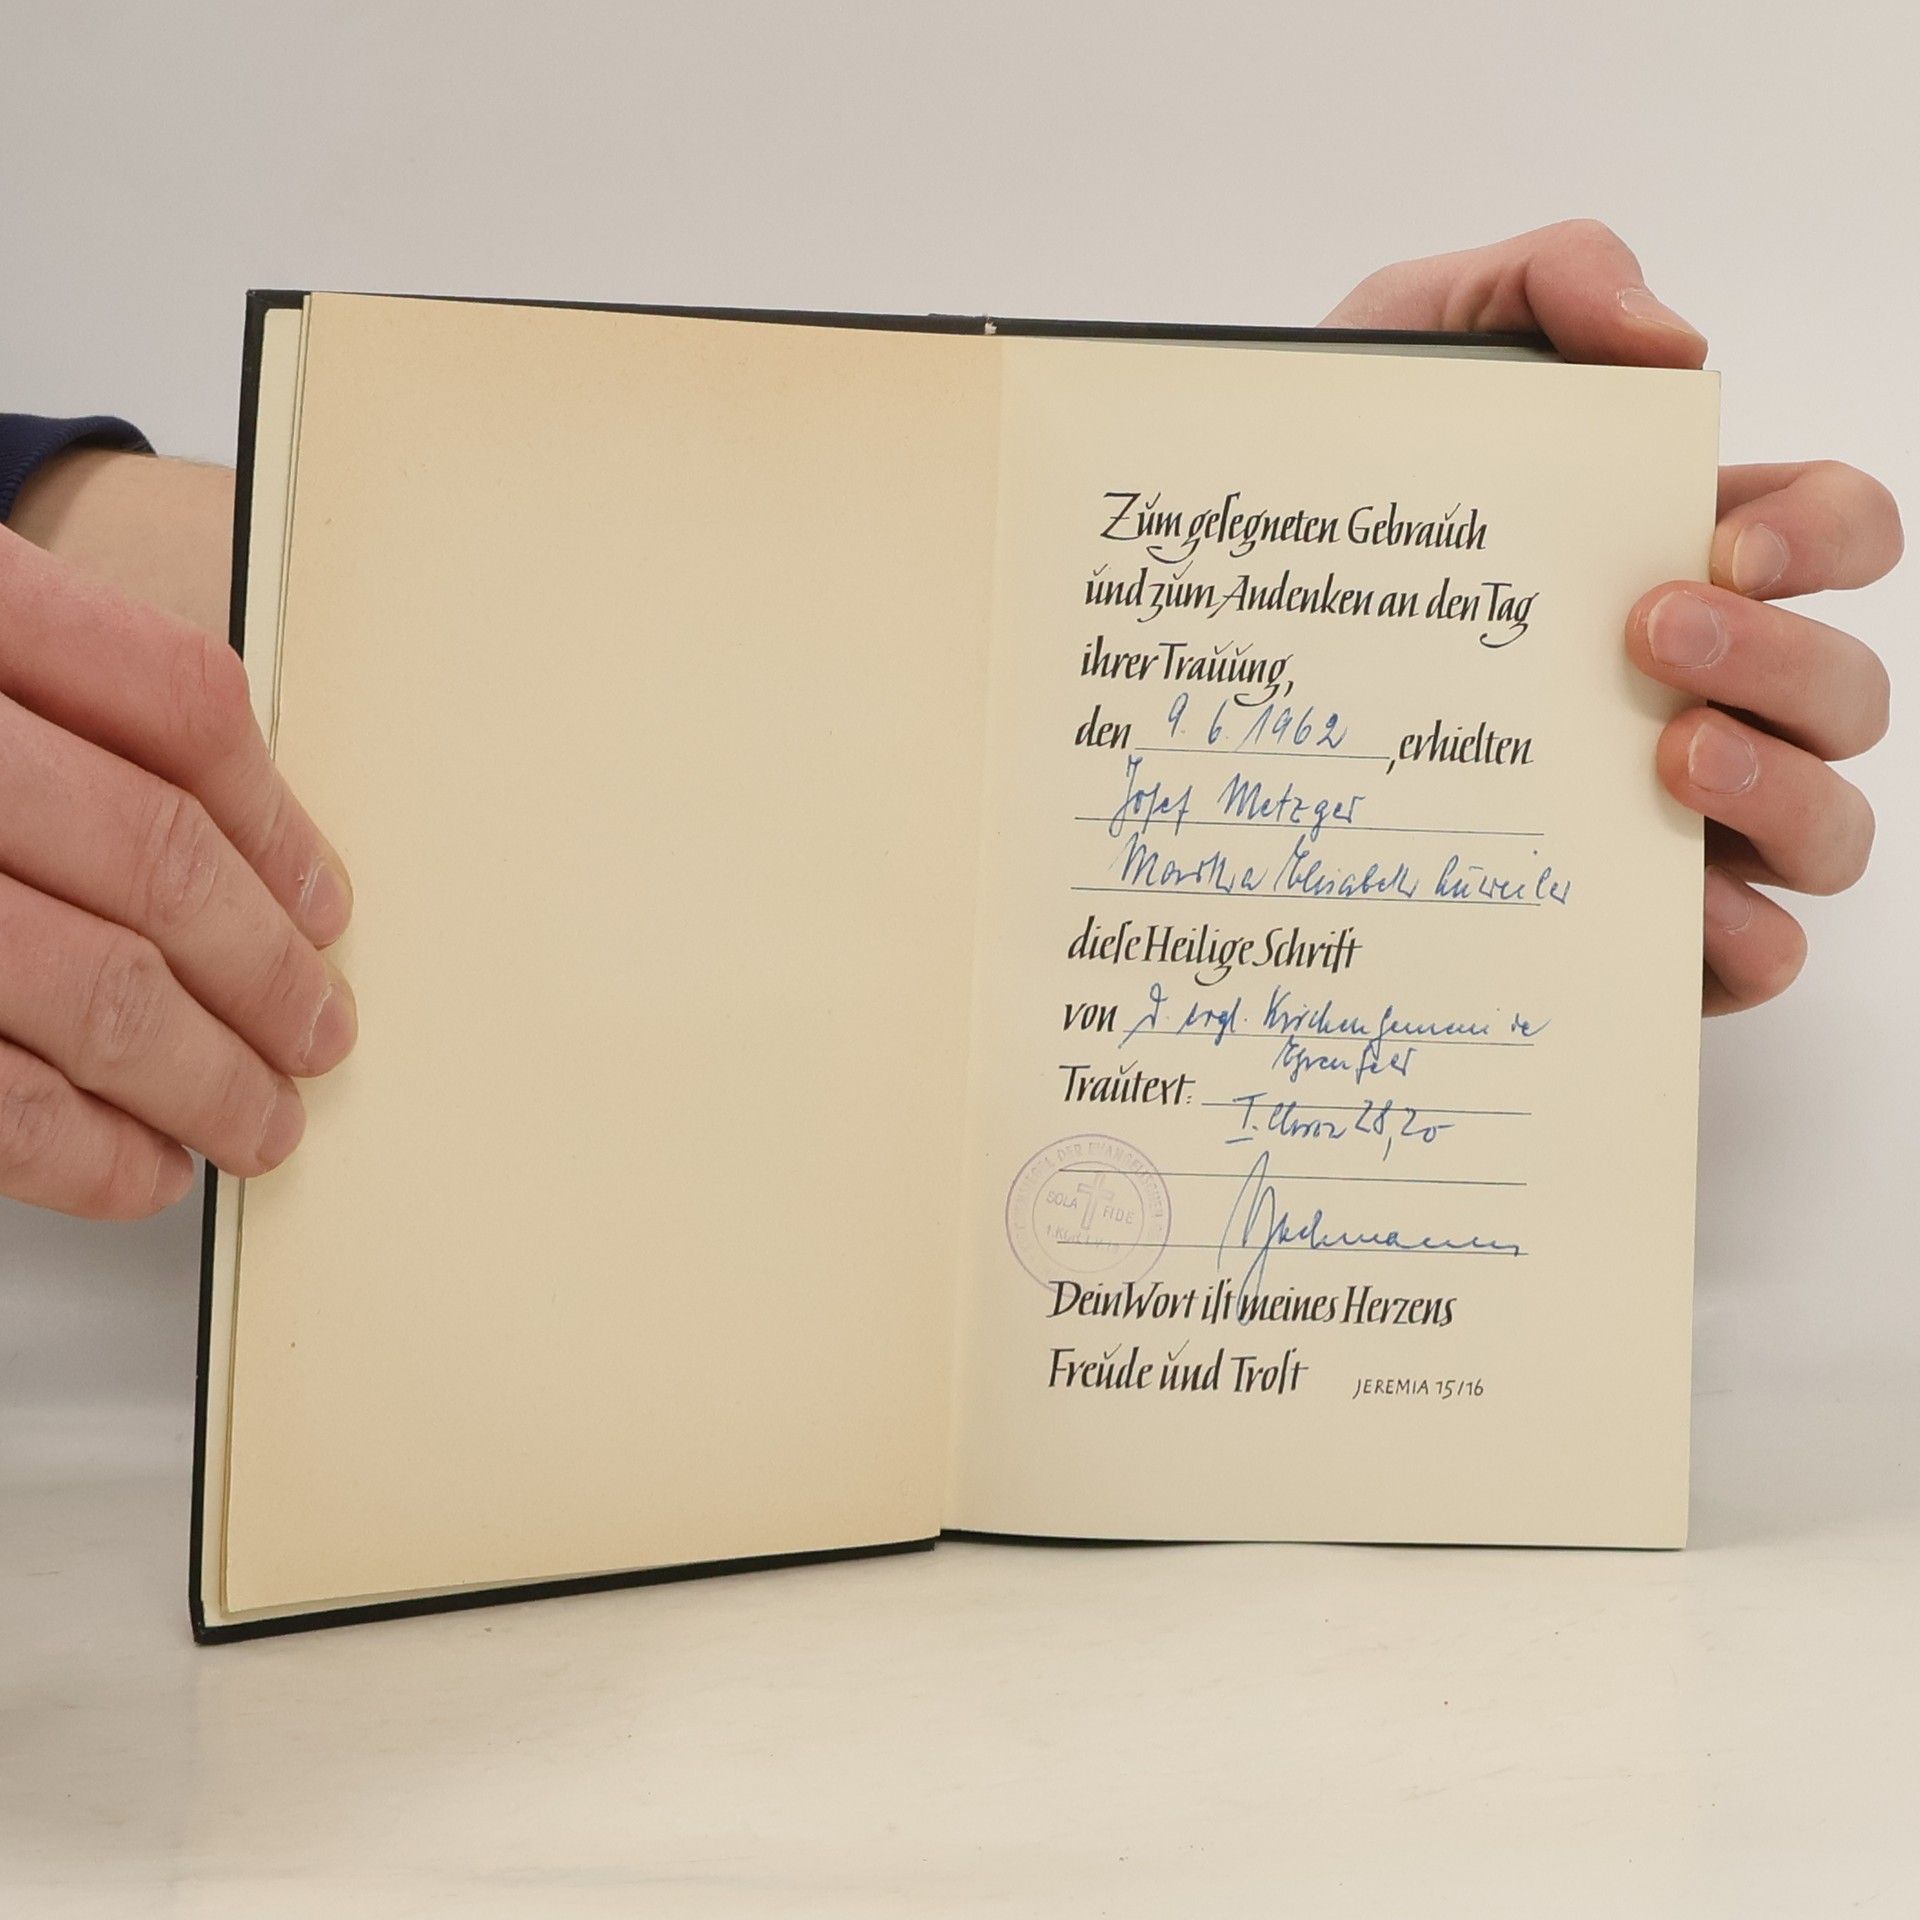 Zum gesegneten Gebrauch
und zum Andenken an den Tag
ihrer Trauung,
den 9. 6. 1962, erhielten
Josef Metzger
Monika Elisabeth
diese Heilige Schrift
von d. evgl. Kirchengemeinde
Ehrenfeld
Trautext:
I. Chron 28,20
SIEGEL DER EVANGELISCHEN
SOLA FIDE
Dein Wort ist meines Herzens
Freude und Trost JEREMIA 15/16